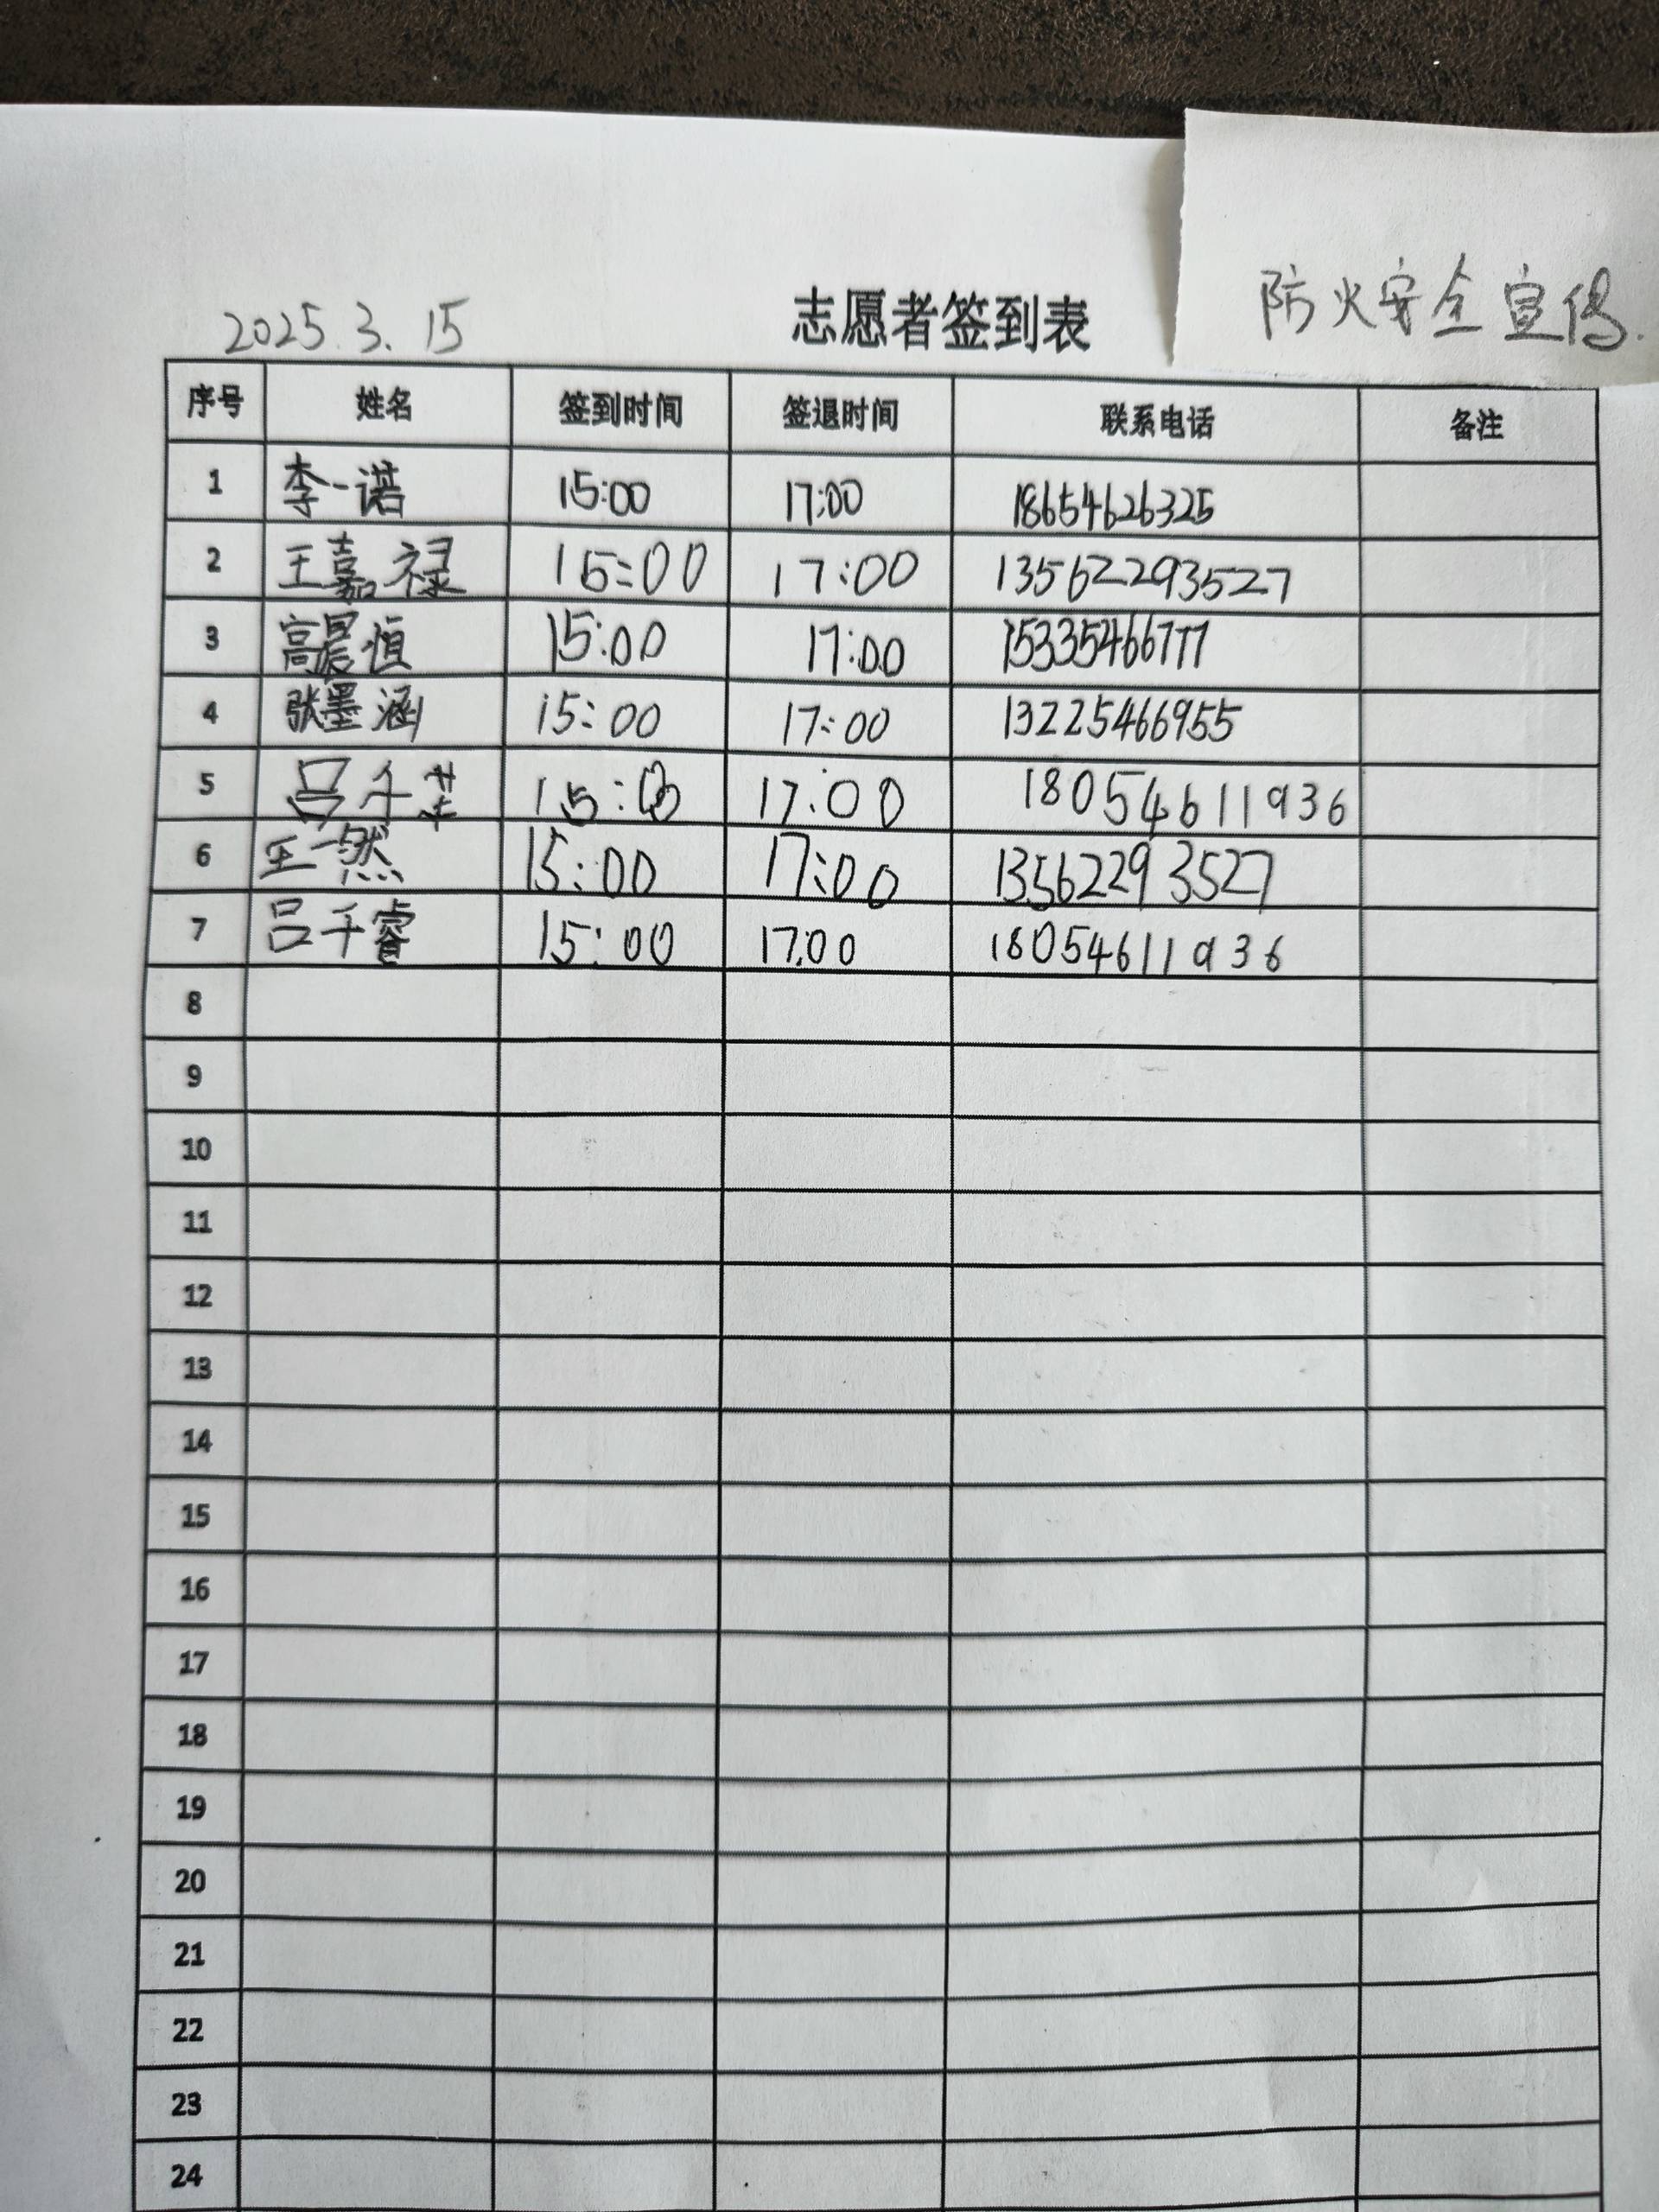 防火安全宣传.
2025.3.15
志愿者签到表
序号 姓名 签到时间 签退时间 联系电话 备注
1 李一诺 15:00 17:00 18654626325
2 王嘉禄 15:00 17:00 13562293527
3 高晨恒 15:00 17:00 15335466777
4 张墨涵 15:00 17:00 13225466955
5 吕千 15:00 17:00 18054611936
6 王一然 15:00 17:00 13562293527
7 吕千睿 15:00 17:00 18054611936
8
9
10
11
12
13
14
15
16
17
18
19
20
21
22
23
24